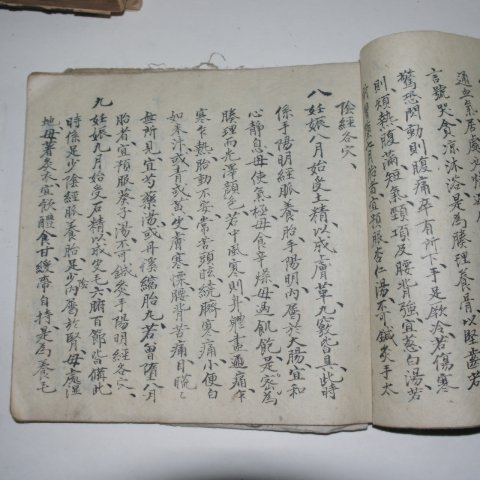 適血氣居處必燥是為腠理養骨以堅齒若
言號哭食凉沐浴是為腠理養骨以堅齒若
驚恐悶動則腹痛卒有所下手足厥冷若傷寒
則煩熱腹滿短氣頸項及腰背强宜葱白湯若
七月胎者宜預服杏仁湯不可鍼灸手太
陰經各穴
八 妊娠八月始受土精以成膚革九竅皆具此時
係手陽明經脈養胎手陽明內屬於大腸宜和
心靜息母使氣極母食辛燥母過飢飽是密為
腠理而光澤顔色若中風寒則身體盡通痛乍
寒乍熱胎動不安常苦頭眩繞臍寒痛小便白
如米汁或青或黃皮膚寒慄腰背苦痛目𥇀〻
無所見宜芍藥湯或丹溪縮胎丸若曾墮八月
胎者宜預服葵子湯不可鍼灸手陽明經各穴
九 妊娠九月始受石精以成皮毛六腑百節皆備此
時係足少陰經脈養胎是內屬於腎母處濕
地母著炙衣宜飮醴食甘緩帶自持是為養毛